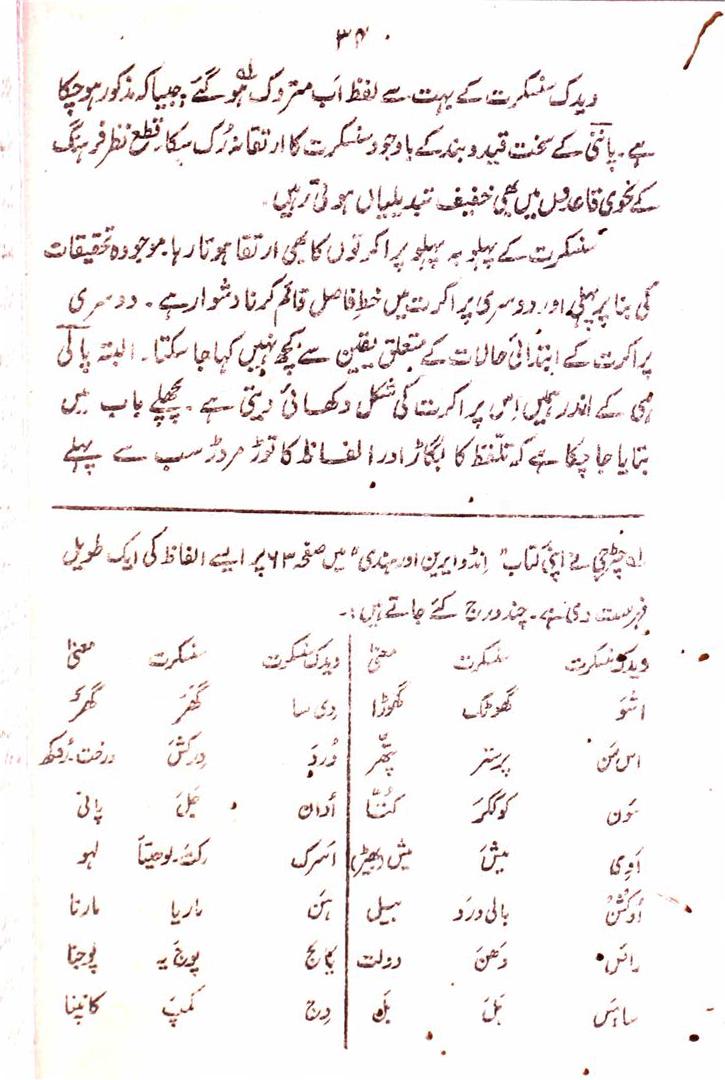 ۳۴
ویدک سنسکرت کے بہت سے لفظ اب متروک ہو گئے۔ جیسا کہ مذکور ہو چکا
ہے۔ پاننی کے سخت قید و بند کے باوجود سنسکرت کا ارتقا نہ رُک سکا۔ قطع نظر فرہنگ
کے نحوی قاعدوں میں بھی خفیف تبدیلیاں ہوتی رہیں۔
سنسکرت کے پہلو بہ پہلو پراکرتوں کا بھی ارتقا ہوتا رہا۔ موجودہ تحقیقات
کی بنا پر پہلی اور دوسری پراکرت میں خطِ فاصل قائم کرنا دشوار ہے۔ دوسری
پراکرت کے ابتدائی حالات کے متعلق یقین سے کچھ نہیں کہا جا سکتا۔ البتہ پالی
ہی کے اندر ہمیں اِس پراکرت کی شکل دکھائی دیتی ہے۔ پچھلے باب میں
بتایا جا چکا ہے کہ تلفّظ کا بگاڑ اور الفاظ کا توڑ مروڑ سب سے پہلے
لہ چٹرجی نے اپنی کتاب "انڈو ایرین اور ہندی" میں صفحہ ۶۳ پر ایسے الفاظ کی ایک طویل
فہرست دی ہے۔ چند درج کئے جاتے ہیں:۔
ویدک سنسکرت سنسکرت معنیٰ ویدک سنسکرت سنسکرت معنیٰ
اشوَ گھوٹک گھوڑا دی سا گھَر گھر
اس مَن پرستر پتّھر دُرد درکشَ درخت۔ رُوکھ
سَون کوککرَ کتّا اُدان جَلَ پانی
اَوِی میشَ میش (بھیڑ) اسرک رکت۔ لوہتیاً لہو
اُوکشنْ بالی ورَد بیل ہَن ماریا مارنا
رائس دَھنَ دولت یج پوجَ یہ پوجنا
ساہَس بَلَ بل وِج کمپَ کانپنا